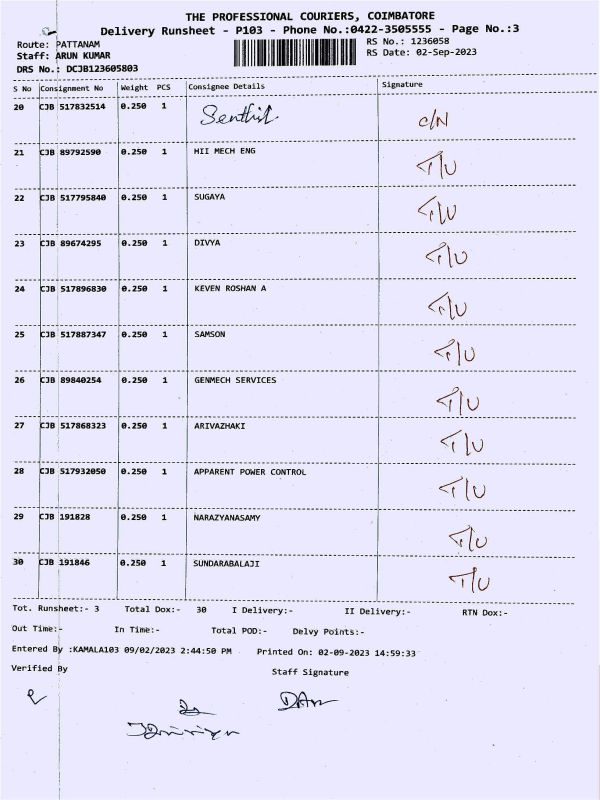 THE PROFESSIONAL COURIERS, COIMBATORE
Delivery Runsheet - P103 - Phone No.:0422-3505555 - Page No.:3
Route: PATTANAM RS No.: 1236058
Staff: ARUN KUMAR RS Date: 02-Sep-2023
DRS No.: DCJB123605803
S No Consignment No Weight PCS Consignee Details Signature
20 CJB 517832514 0.250 1 Senthil C/N
21 CJB 89792590 0.250 1 HII MECH ENG T/U
22 CJB 517795840 0.250 1 SUGAYA T/U
23 CJB 89674295 0.250 1 DIVYA T/U
24 CJB 517896830 0.250 1 KEVEN ROSHAN A T/U
25 CJB 517887347 0.250 1 SAMSON T/U
26 CJB 89840254 0.250 1 GENMECH SERVICES T/U
27 CJB 517868323 0.250 1 ARIVAZHAKI T/U
28 CJB 517932050 0.250 1 APPARENT POWER CONTROL T/U
29 CJB 191828 0.250 1 NARAZYANASAMY T/U
30 CJB 191846 0.250 1 SUNDARABALAJI T/U
Tot. Runsheet:- 3 Total Dox:- 30 I Delivery:- II Delivery:- RTN Dox:-
Out Time:- In Time:- Total POD:- Delvy Points:-
Entered By :KAMALA103 09/02/2023 2:44:50 PM Printed On: 02-09-2023 14:59:33
Verified By Staff Signature